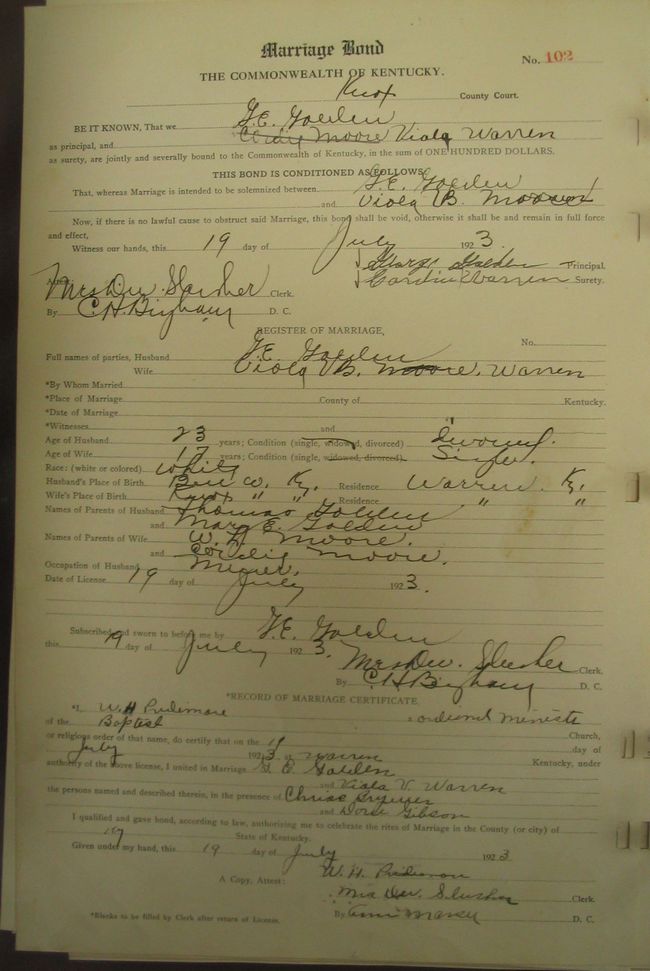 Marriage Bond
No. 102
THE COMMONWEALTH OF KENTUCKY.
Knox County Court.
BE IT KNOWN, That we G.E. Golden
as principal, and Cordie Moore Viola Warren
as surety, are jointly and severally bound to the Commonwealth of Kentucky, in the sum of ONE HUNDRED DOLLARS.
THIS BOND IS CONDITIONED AS FOLLOWS:
That, whereas Marriage is intended to be solemnized between G.E. Golden
and Viola B. Moore
Now, if there is no lawful cause to obstruct said Marriage, this bond shall be void, otherwise it shall be and remain in full force
and effect,
Witness our hands, this 19 day of July 1923.
George Golden Principal.
Attest: Mrs. D.W. Slusher Clerk. Cordie Warren Surety.
By C.H. Bingham D. C.
REGISTER OF MARRIAGE,
No.
Full names of parties, Husband G.E. Golden
Wife Viola B. Moore. Warren
*By Whom Married
*Place of Marriage County of Kentucky.
*Date of Marriage
*Witnesses and
Age of Husband 23 years; Condition (single, widowed, divorced) Divorced.
Age of Wife 17 years; Condition (single, widowed, divorced) Single.
Race: (white or colored) White
Husband's Place of Birth Ky. Residence Warren. Ky.
Wife's Place of Birth Knox " " Residence " "
Names of Parents of Husband Thomas Golden
and Mary E. Golden
Names of Parents of Wife W. H. Moore.
and Cordie Moore.
Occupation of Husband Miner.
Date of License 19 day of July 1923.
Subscribed and sworn to before me by G.E. Golden
this 19 day of July 1923.
Mrs. D.W. Slusher Clerk.
By C.H. Bingham D. C.
*RECORD OF MARRIAGE CERTIFICATE,
*I, W. H. Pridimore a ordiend Ministe
of the Baptist Church,
or religious order of that name, do certify that on the 19 day of
July 1923 at Warren Kentucky, under
authority of the above license, I united in Marriage G E Golden
and Viola V. Warren
the persons named and described therein, in the presence of Chrisc
and Gibson
I qualified and gave bond, according to law, authorizing me to celebrate the rites of Marriage in the County (or city) of
Ky State of Kentucky.
Given under my hand, this 19 day of July 1923
W. H. Pridimore
A Copy, Attest: Mrs D.W. Slusher Clerk.
*Blanks to be filled by Clerk after return of License. By D. C.